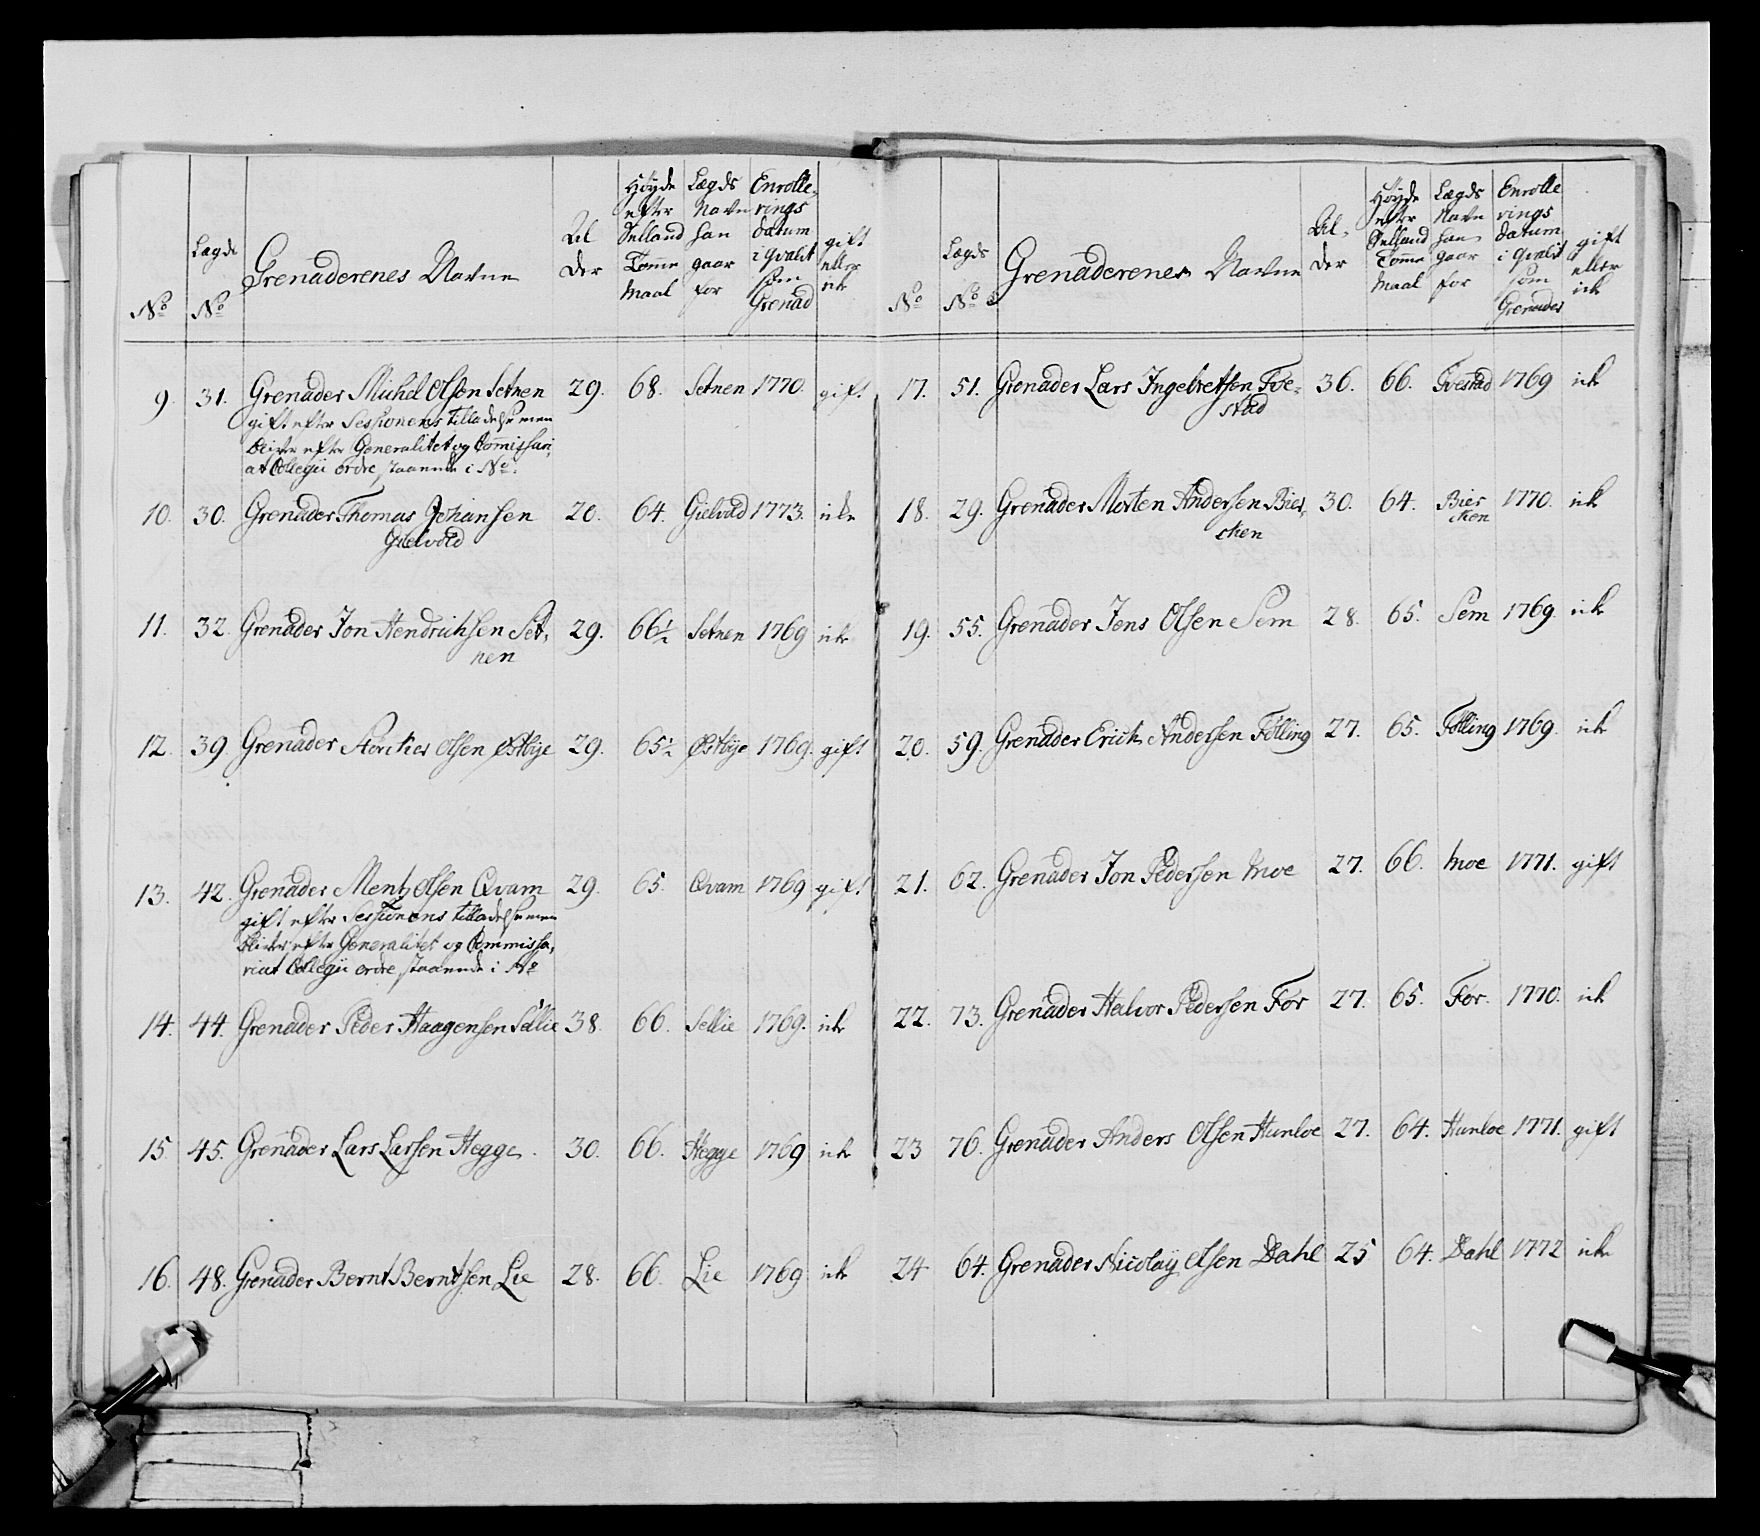 No
Lægds No
Grenaderenes Navne
Al der
Høyde efter Selland Tomme Maal
Lægds Navn han gaar for
Enrolle, rings datum i qvalit som Grenad
gift eller ick
9. 31. Grenader Michel Olsen Setnen 29. 68. Setnen 1770. gift
gift efter Sessionens tilladelse men
bliver efter Generalitet og Commissari,
at Collegii ordre, staaende i No.
10. 30. Grenader Thomas Johansen 20. 64. Gielvold 1773. icke
Gielvold
11. 32. Grenader Jon Hendrichsen Set, 29. 66½ Setnen 1769 ick
nen
12. 39. Grenader Storcker Olsen Østbye 29. 65½ Østbye 1769. gift
13. 42. Grenader Mentz Olsen Qvam 29. 65. Qvam 1769 gift
gift efter Sessionens tilladelse men
bliver efter Generalitet og Commissa,
riat Collegii ordre, staaende i No
14. 44. Grenader Peder Haagensen Sellie 38. 66. Sellie 1769. ick
15. 45. Grenader Lars Larsen Hegge. 30. 66. Hegge 1769 ick
16. 48. Grenader Bernt Berntsen Lie 28. 66. Lie 1769 ick
No
Lægds No
Grenaderenes Navne
Al, der
Høyde efter Selland Tomme Maal
Lægds Navn han gaar for
Enrolle rings datum i qvalit som Grenader
gift eller ick
17. 51. Grenader Lars Ingebretsen Tve, 36. 66. Tvestad 1769 ick
stad
18. 29. Grenader Morten Andersen Bier, 30. 64. Bier 1770. ick
chen chen
19. 55. Grenader Jens Olsen Sem 28. 65. Sem 1769. ick
20. 59. Grenader Erich Andersen Følling 27. 65. Følling 1769. ick
21. 62. Grenader Jon Pedersen Moe 27. 66. Moe 1771. gift
22. 73. Grenader Halvor Pedersen Før 27. 65. Før. 1770. ick
23 76. Grenader Anders Olsen Hunloe 27. 64. Hunloe 1771. gift
24 64. Grenader Nicolay Olsen Dahl 25 64. Dahl 1772 ick